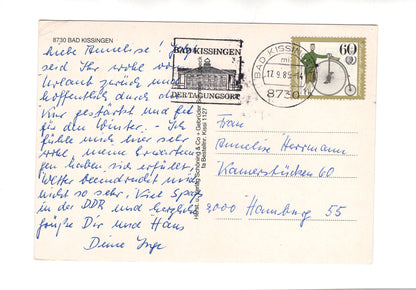 8730 BAD KISSINGEN
Liebe Annelise! 
seid Ihr wohl vom
Urlaub zurück und
hoffentlich durch die
Kur gestärkt und fit
für den Winter. - Ich
fühle mich hier sehr
wohl, meine Erwartun-
gen haben sich erfüllt,
Wetter beeindruckt mich
nicht so sehr. Viel Spaß
in der DDR und herzliche
Grüße Dir und Hans
Deine Inge
Herst. u. Verlag Schöning & Co + Gebrüder
Bestellnr. Kissi 1127
BAD KISSINGEN
DER TAGUNGSORT
BAD KISSIN
17.9.85-14
8730
60
Frau
Annelise Herrmann
Kamerstücken 60
2000 Hamburg 55